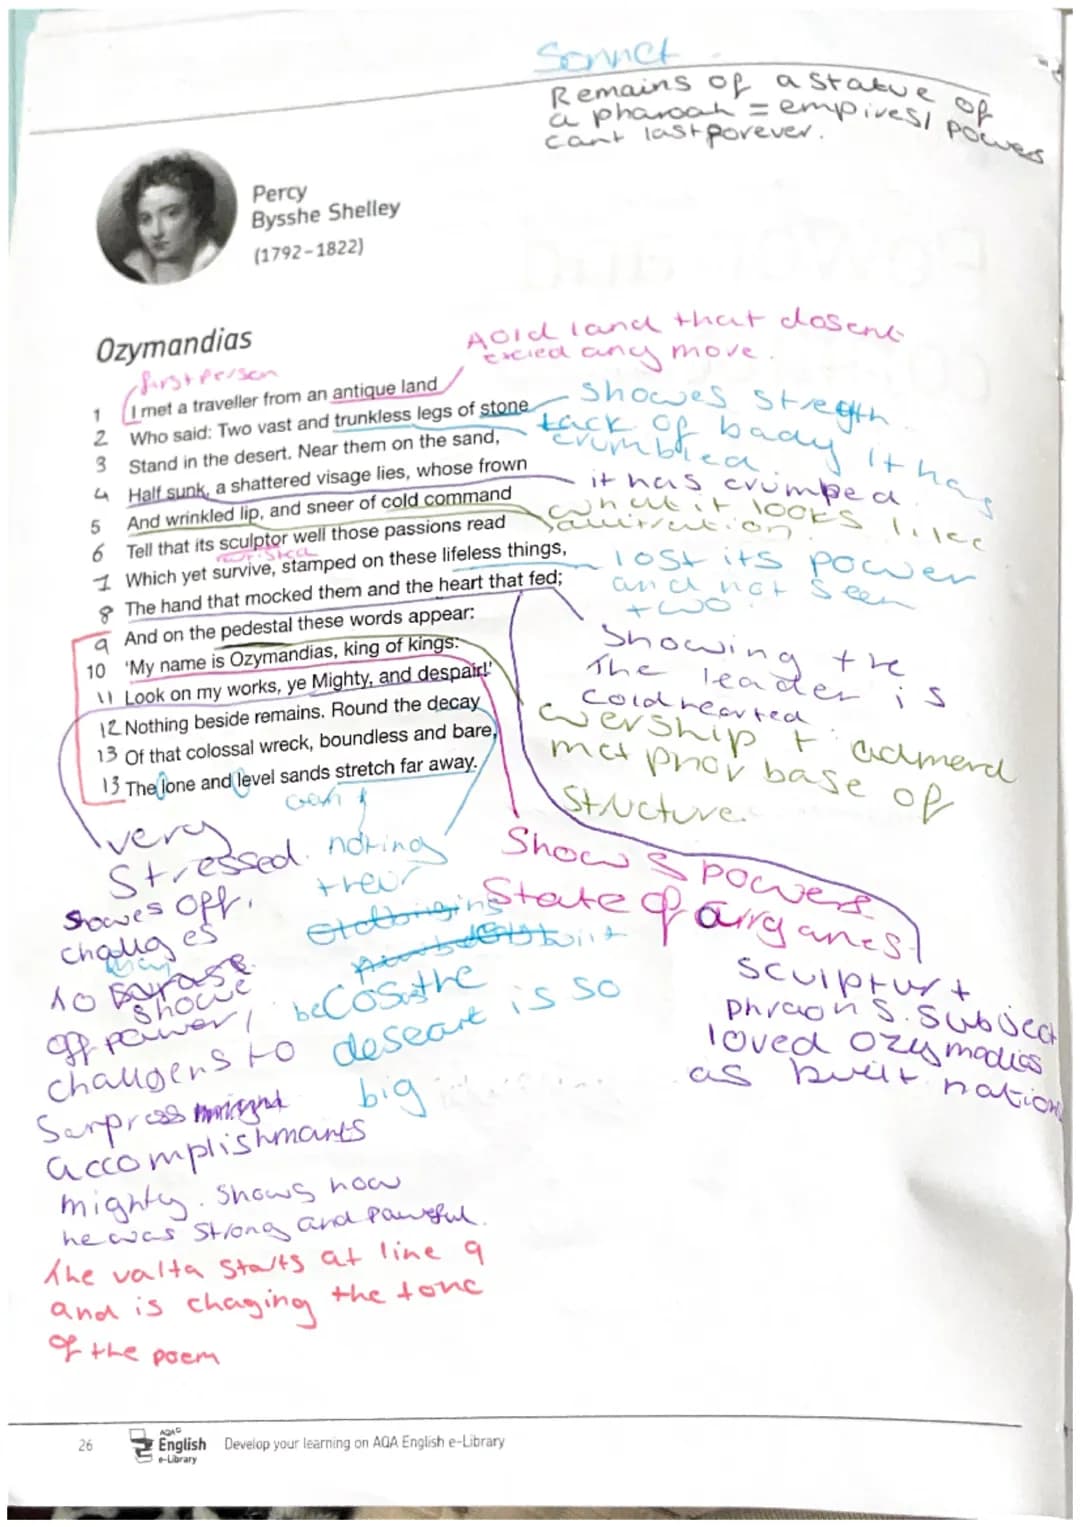 Sonnet
Remains of a statue of
a pharoah = empires/ powers
cant last forever.
Percy
Bysshe Shelley
(1792-1822)
Ozymandias
A old land that dosent
any more.
first person
1 I met a traveller from an antique land
2 Who said: Two vast and trunkless legs of stone
3 Stand in the desert. Near them on the sand,
4 Half sunk, a shattered visage lies, whose frown
5 And wrinkled lip, and sneer of cold command
6 Tell that its sculptor well those passions read
7 Which yet survive, stamped on these lifeless things,
8 The hand that mocked them and the heart that fed;
9 And on the pedestal these words appear:
10 'My name is Ozymandias, king of kings:
11 Look on my works, ye Mighty, and despair!'
12 Nothing beside remains. Round the decay
13 Of that colossal wreck, boundless and bare,
13 The lone and level sands stretch far away.
showes stregth
lack of body it has
crumbled.
it has crumped
what it looks like
lost its power
and not seen
two
Showing the
The leader is
cold hearted
wership + admerd
base of
structure.
Shows powers
state of
sculptur +
phraon s. subject
loved ozymadias
as built nation
very
stressed.
showes off.
challges
to
showe
off power,
challgens to
accomplishments
mighty. shows how
he was strong and powerful.
nothing
ther
becos the
deseart is so
big
The valta starts at line 9
and is chaging the tone
of the poem
26
AQA
English
e-Library
Develop your learning on AQA English e-Library